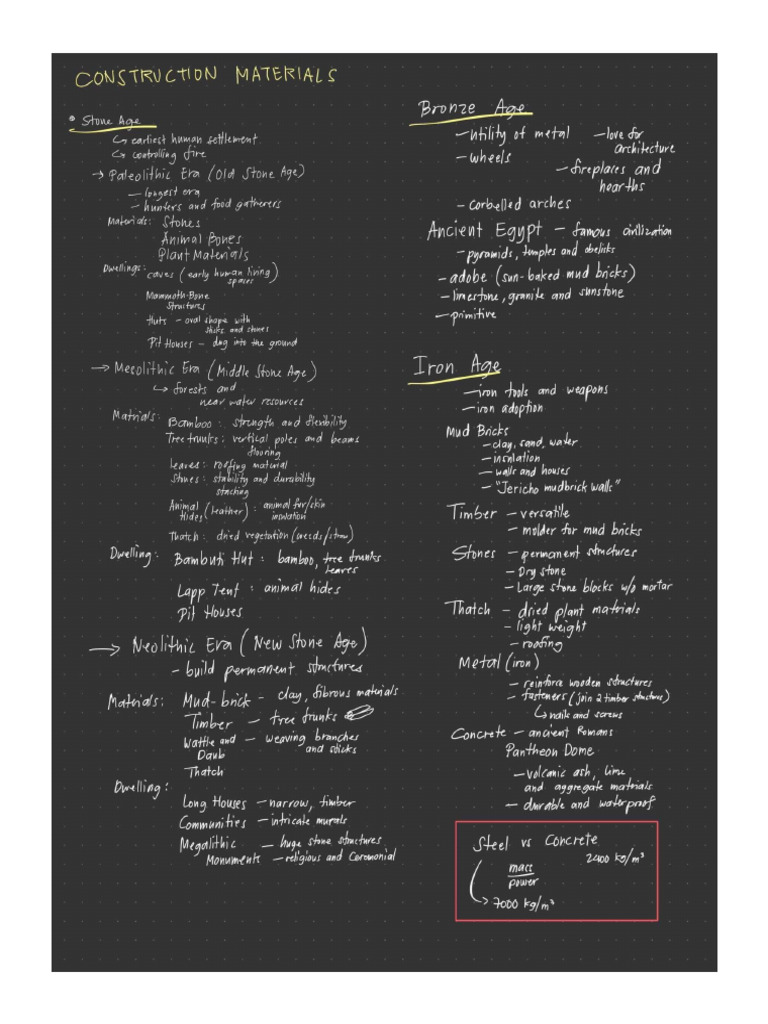 CONSTRUCTION MATERIALS
• Stone Age
↳ earliest human settlement
↳ controlling fire
→ Paleolithic Era (Old Stone Age)
— longest era
— hunters and food gatherers
Materials: Stones
Animal Bones
Plant Materials
Dwellings: caves (early human living
spaces)
Mammoth-Bone
Structures
Huts — oval shape with
sticks and stones
Pit Houses — dug into the ground
→ Mesolithic Era (Middle Stone Age)
↳ forests and
near water resources
Matrials: Bamboo : strength and flexibility
Tree trunks : vertical poles and beams
flooring
Leaves : roofing material
Stones : stability and durability
stacking
Animal (leather) : animal fur/skin
Hides insulation
Thatch : dried vegetation (weeds/straw)
Dwelling: Bambuti Hut : bamboo, tree trunks
leaves
Lapp Tent : animal hides
Pit Houses
→ Neolithic Era (New Stone Age)
— build permanent structures
Materials: Mud-brick — clay, fibrous materials
Timber — tree trunks
Wattle and — weaving branches
Daub and sticks
Thatch
Dwelling:
Long Houses — narrow, timber
Communities — intricate murals
Megalithic — huge stone structures
Monuments — religious and Ceremonial
Bronze Age
— utility of metal — love for
architecture
— wheels — fireplaces and
hearths
— corbelled arches
Ancient Egypt — famous civilization
— pyramids, temples and obelisks
— adobe (sun-baked mud bricks)
— limestone, granite and sunstone
— primitive
Iron Age
— iron tools and weapons
— iron adoption
Mud Bricks
— clay, sand, water
— insulation
— walls and houses
— "Jericho mudbrick walls"
Timber — versatile
— molder for mud bricks
Stones — permanent structures
— Dry stone
— Large stone blocks w/o mortar
Thatch — dried plant materials
— light weight
— roofing
Metal (iron)
— reinforce wooden structures
— fasteners (join 2 timber structures)
↳ nails and screws
Concrete — ancient Romans
Pantheon Dome
— volcanic ash, lime
and aggregate materials
— durable and waterproof
Steel vs Concrete
2400 kg/m³
mass
power
→ 7000 kg/m³